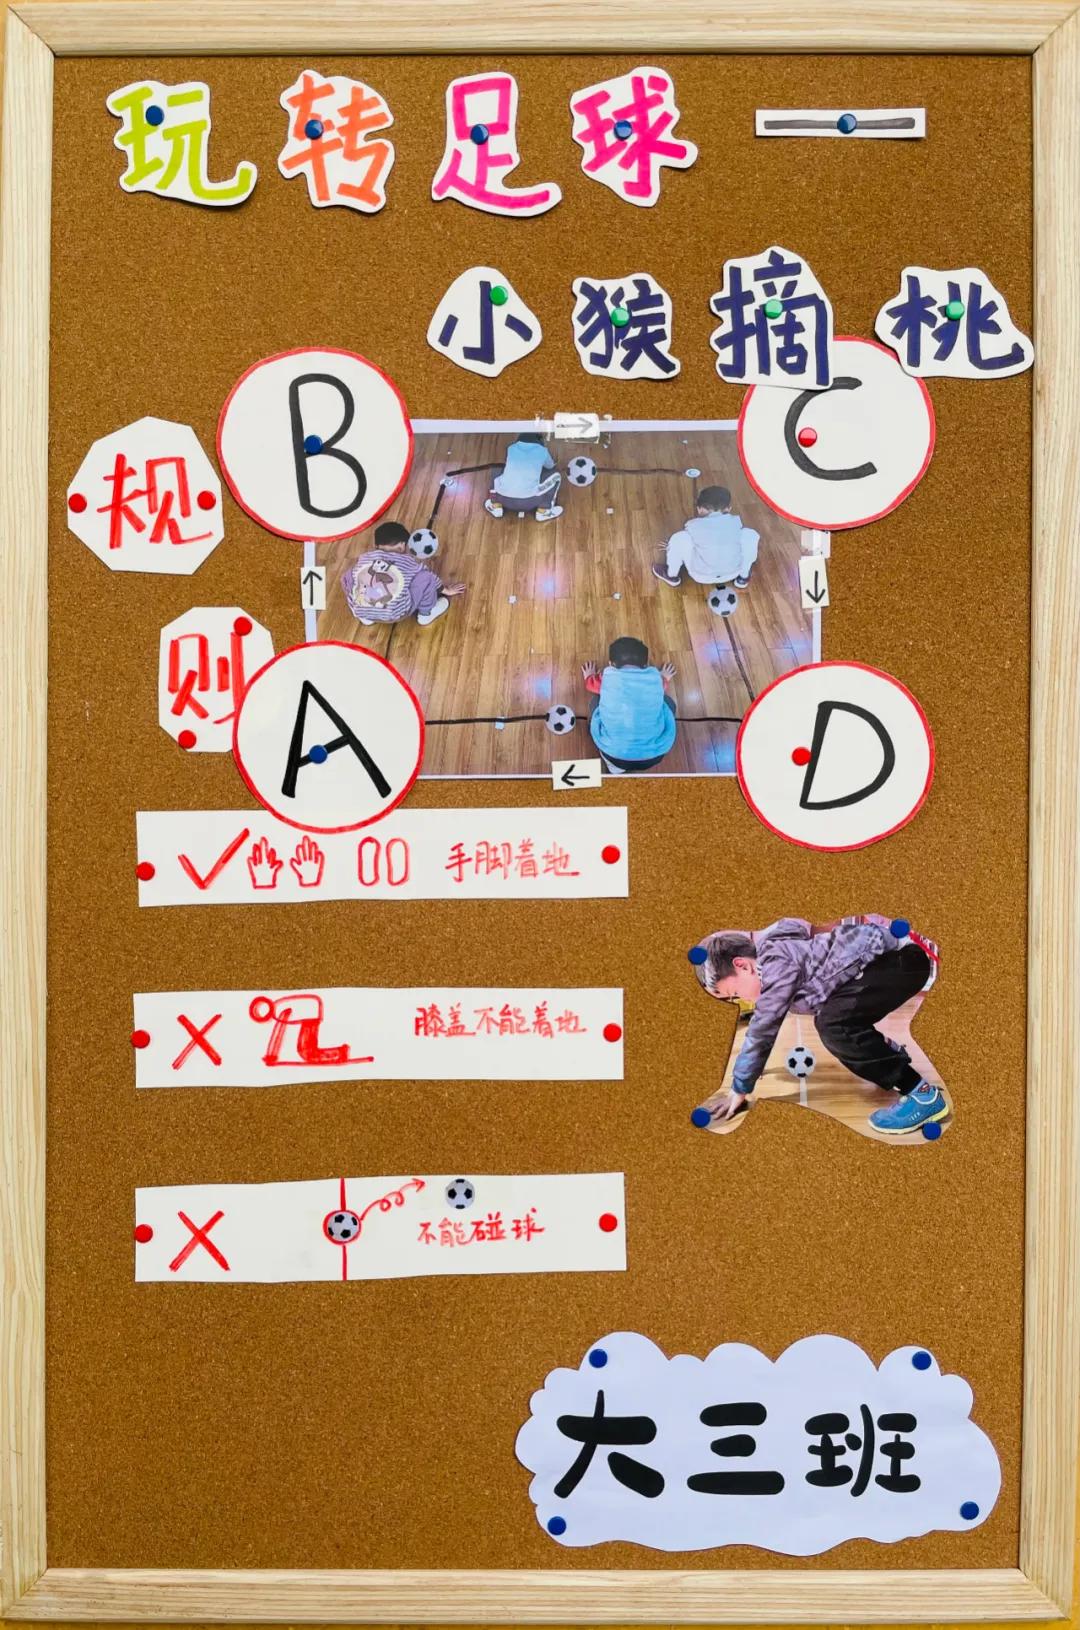 玩转足球一
小猴摘桃
规则
B
C
A
D
手脚着地
膝盖不能着地
不能碰球
大三班